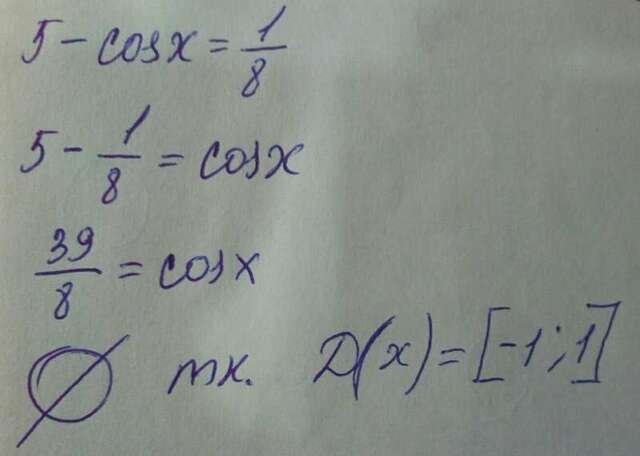 5 - cosx = 1/8
5 - 1/8 = cosx
39/8 = cosx
∅ тк. D(x) = [-1; 1]